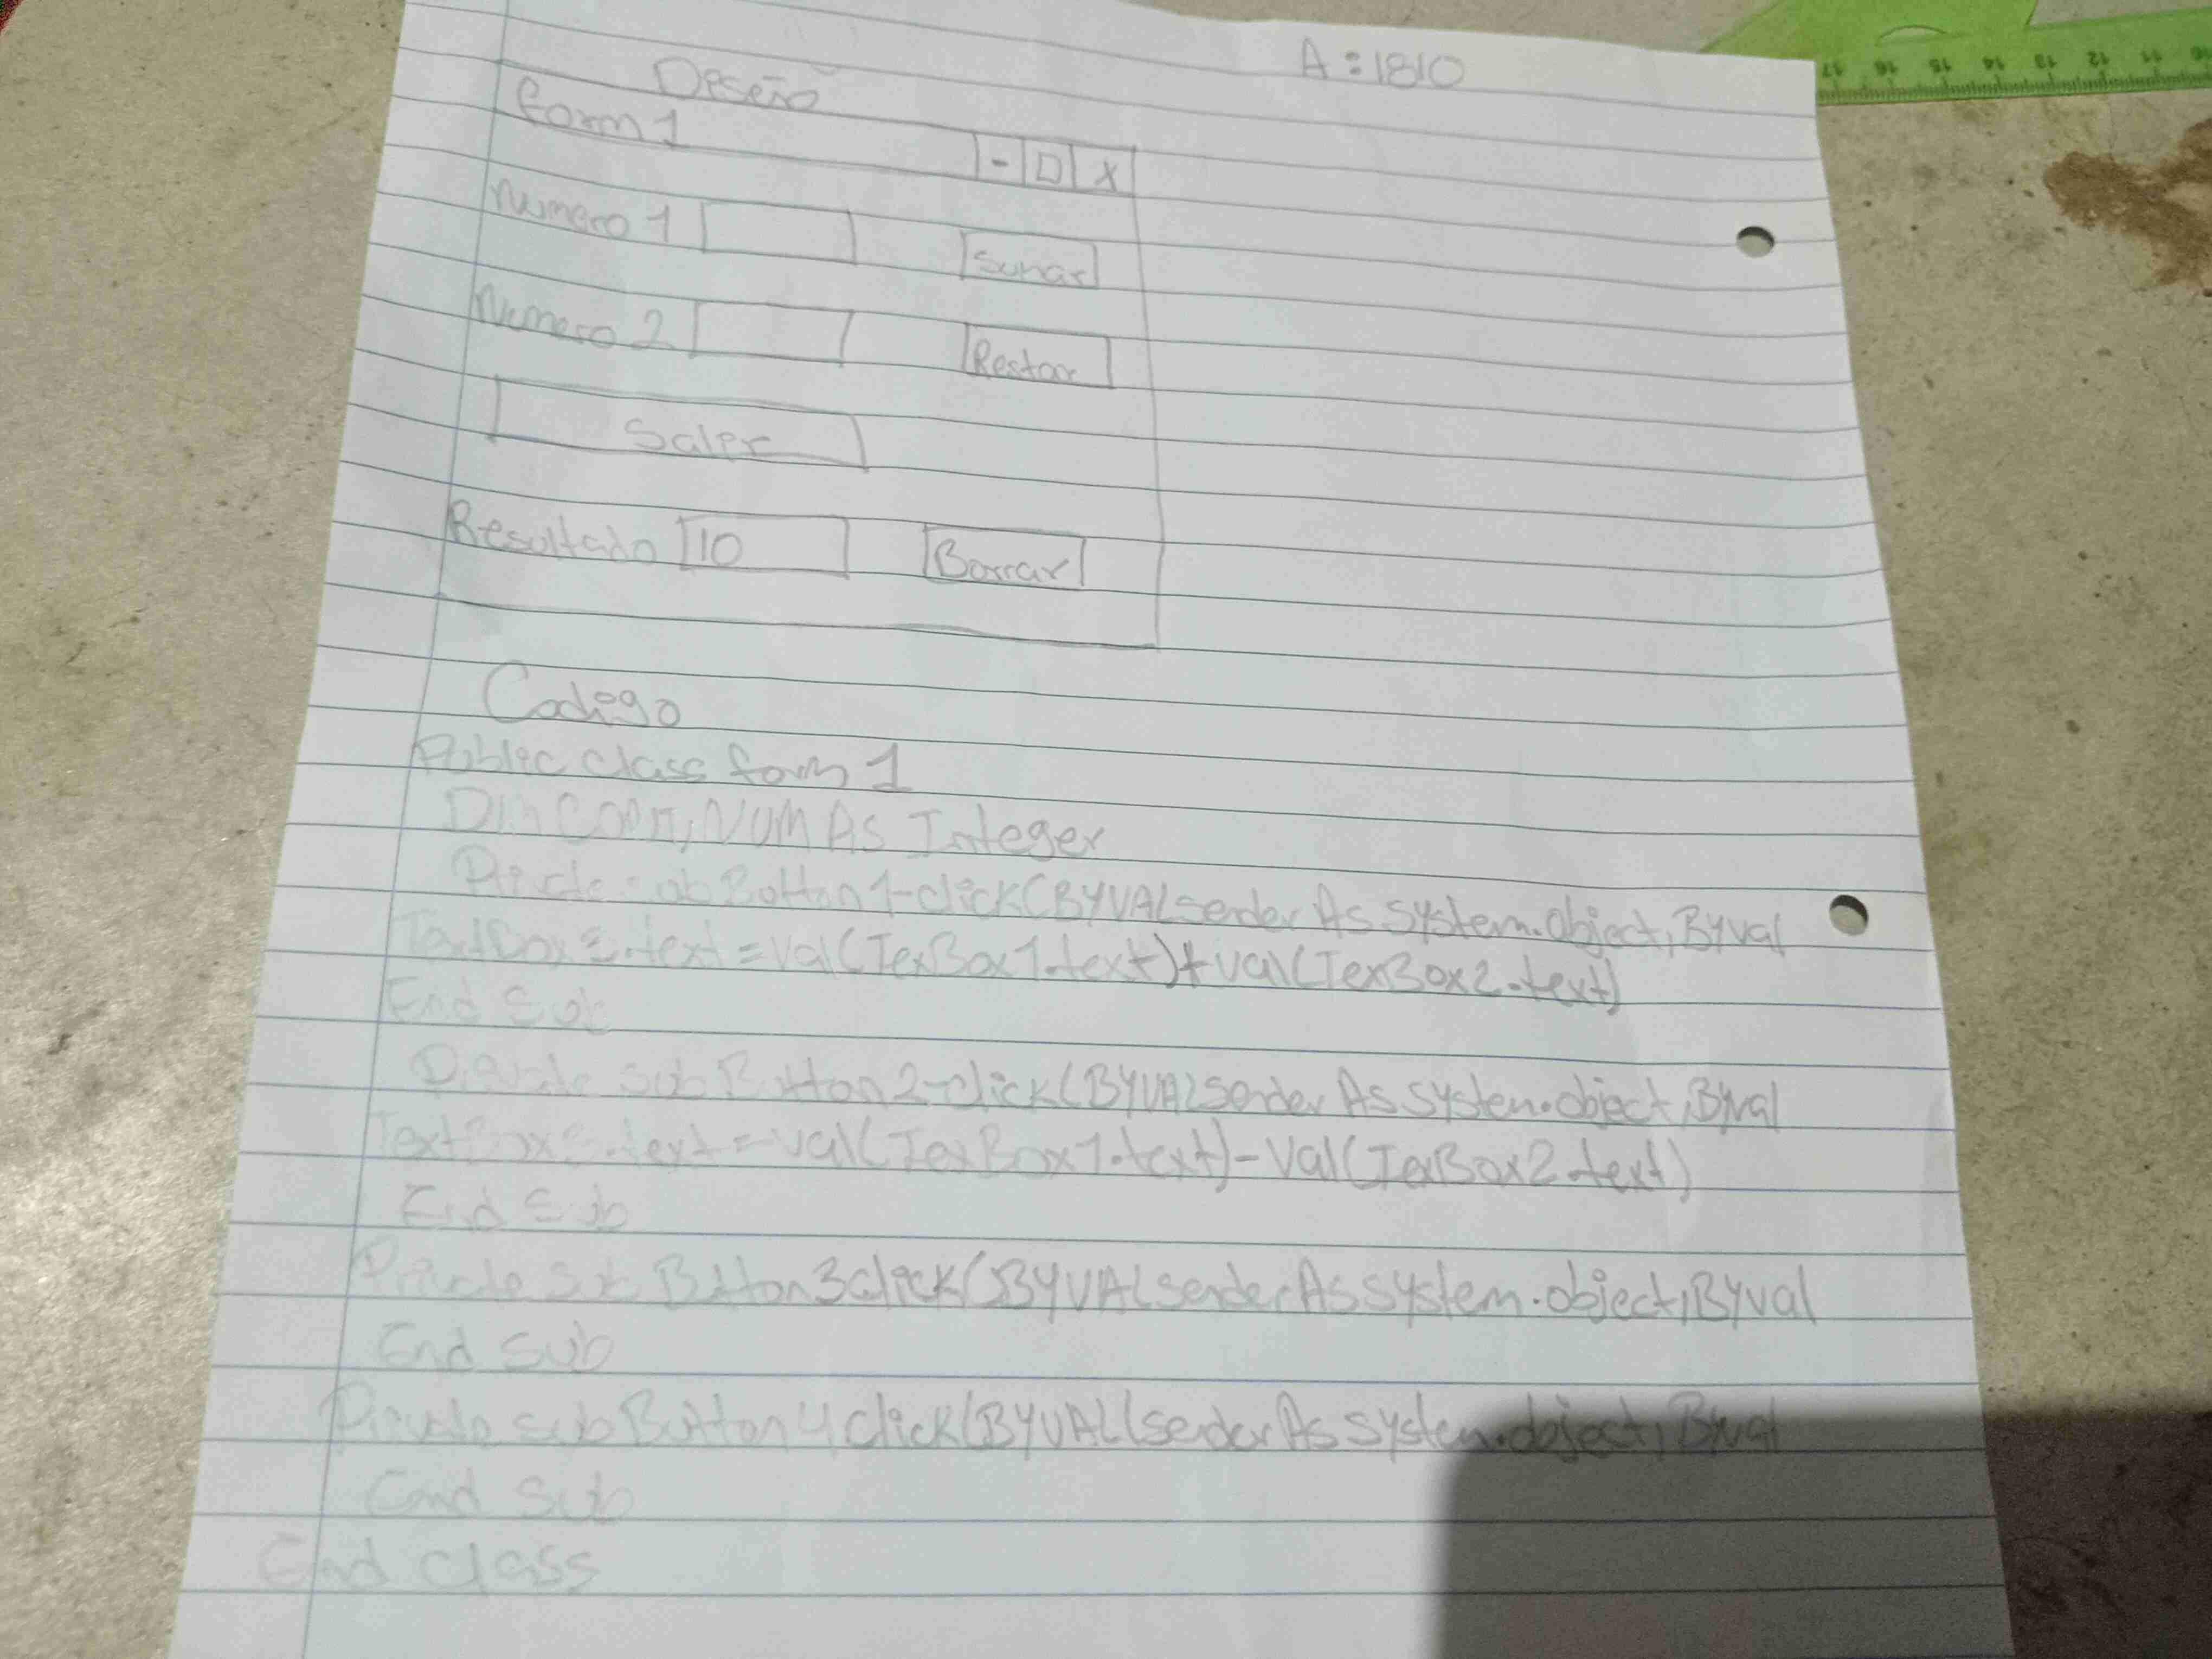 A:1810
Deseño
form 1
- □ X
Numero 1
Sumar
Numero 2
Restar
Saler
Resultado 10 Borrar
Codigo
Public class form 1
NUM As Integer
Button 1-click(BYVAL sender As system.object, Byval
TextBox3.text = val(TexBox1.text)+val(TexBox2.text)
End Sub
Private sub Button 2-click(BYVAL sender As system.object, Byval
TextBox3.text = val(TexBox1.text)-Val(TexBox2.text)
End Sub
Private sub Button 3click(BYVAL sender As system.object, Byval
End sub
Private sub Button 4 click(BYVAL(sender As system.object, Byval
End sub
End class